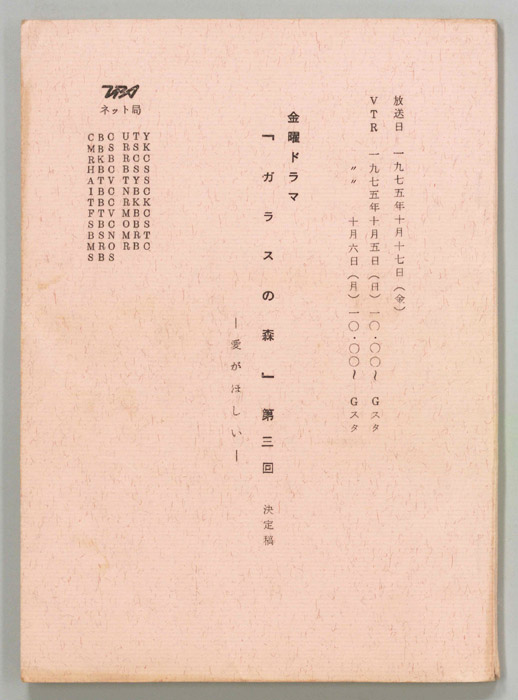 放送日 一九七五年十月十七日(金)
VTR 一九七五年十月五日(日)一〇・〇〇〜 Gスタ
〃 十月六日(月)一〇・〇〇〜 Gスタ
金曜ドラマ
『ガラスの森』第三回 決定稿
―愛がほしい―
TBS
ネット局
CBC UTY
MBS RSK
RKB RCC
HBC BSS
ATV TYS
IBC NBC
TBC RKK
FTV MBC
SBC OBS
BSN MRT
MRO RBC
SBS